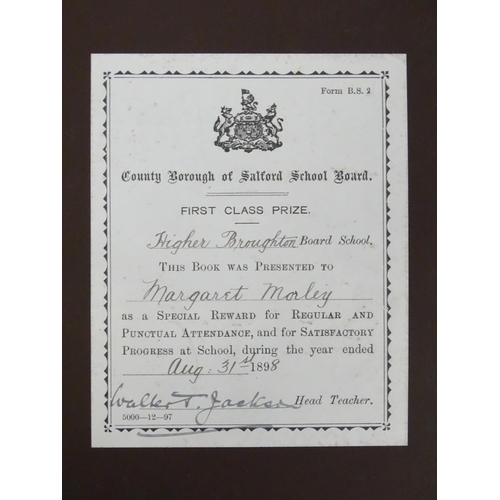 Form B.S. 2
County Borough of Salford School Board.
FIRST CLASS PRIZE.
Higher Broughton Board School.
THIS BOOK WAS PRESENTED TO
Margaret Morley
as a SPECIAL REWARD for REGULAR AND
PUNCTUAL ATTENDANCE, and for SATISFACTORY
PROGRESS at SCHOOL, during the year ended
Aug: 31st 1898
Walter T. Jackson Head Teacher.
5000—12—97